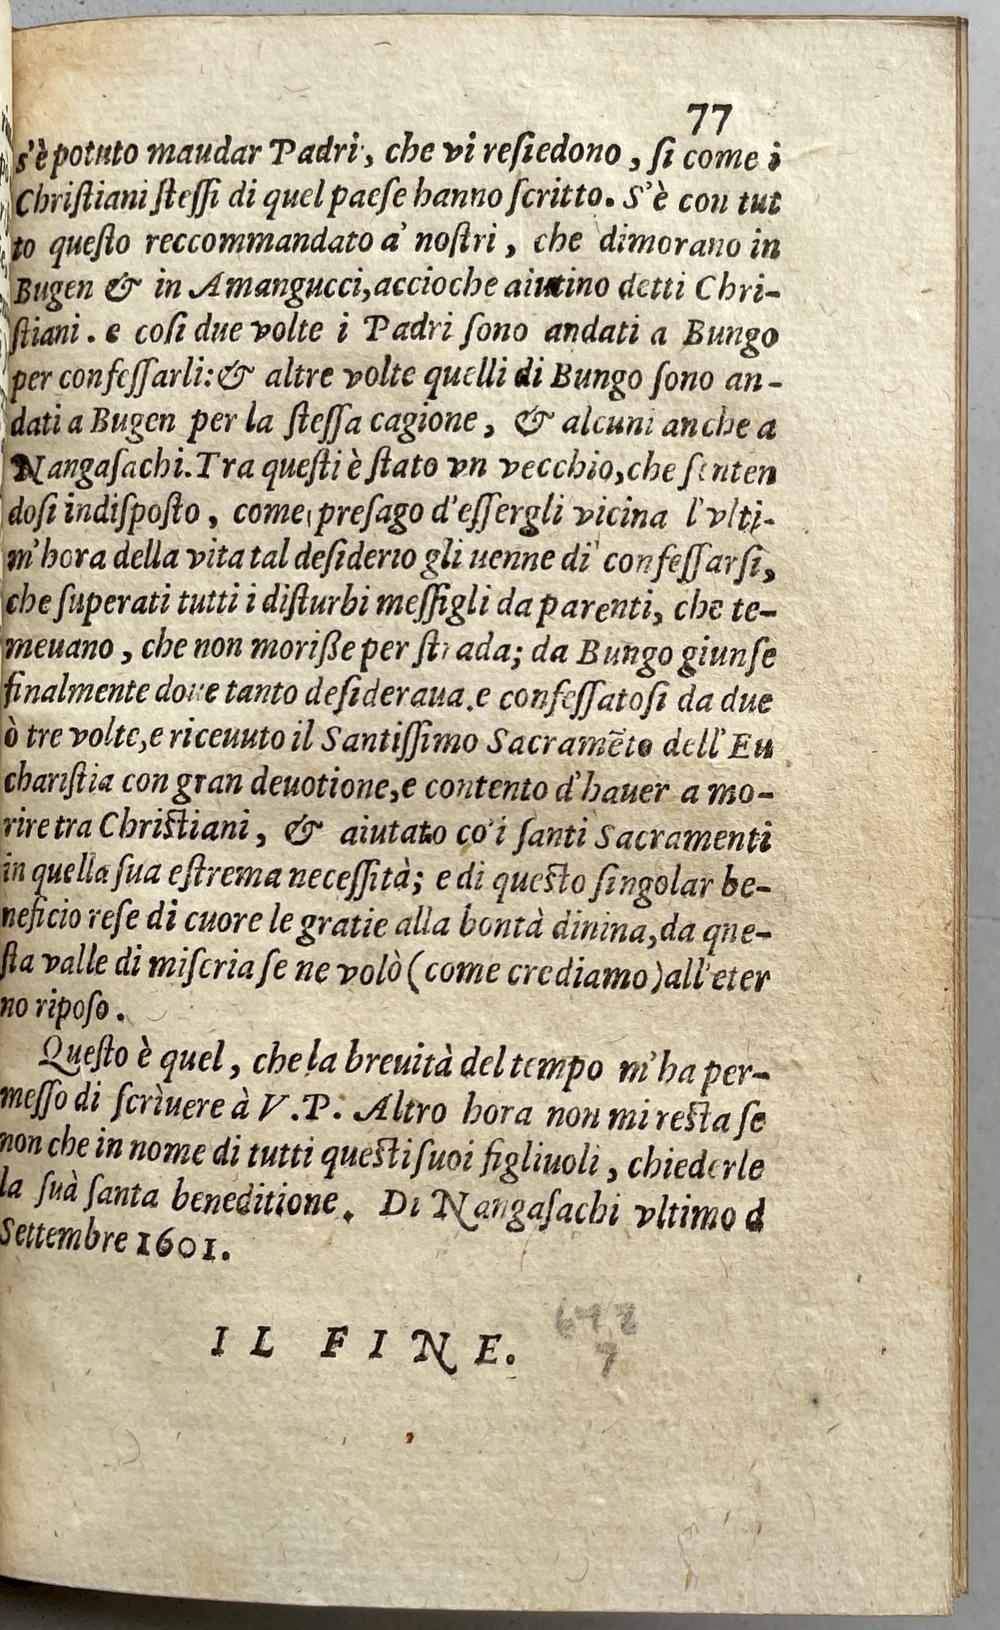 77
s'è potuto maudar Padri, che vi reſiedono, ſi come i
Chriſtiani ſteſſi di quel paeſe hanno ſcritto. S'è con tut
to queſto reccommandato a' noſtri, che dimorano in
Bugen & in Amangucci, accioche aiutino detti Chri-
ſtiani. e coſi due volte i Padri ſono andati a Bungo
per confeſſarli: & altre volte quelli di Bungo ſono an-
dati a Bugen per la ſteſſa cagione, & alcuni anche a
Nangaſachi. Tra queſti è ſtato vn vecchio, che ſenten
doſi indiſpoſto, come preſago d'eſſergli vicina l'vlti-
m'hora della vita tal deſiderio gli uenne di confeſſarſi,
che ſuperati tutti i diſturbi meſſigli da parenti, che te-
meuano, che non moriße per ſtrada; da Bungo giunſe
finalmente doue tanto deſideraua. e confeſſatoſi da due
ò tre volte, e riceuuto il Santiſſimo Sacramẽto dell'Eu
chariſtia con gran deuotione, e contento d'hauer a mo-
rire tra Chriſtiani, & aiutato co'i ſanti Sacramenti
in quella ſua eſtrema neceſſità; e di queſto ſingolar be-
neficio reſe di cuore le gratie alla bontà dinina, da que-
ſta valle di miſeria ſe ne volò (come crediamo) all'eter
no ripoſo.
Queſto è quel, che la breuità del tempo m'ha per-
meſſo di ſcrìuere à V. P. Altro hora non mi reſta ſe
non che in nome di tutti queſti ſuoi figliuoli, chiederle
la ſuà ſanta beneditione. Di Nangaſachi vltimo d
Settembre 1601.
IL FINE.
7